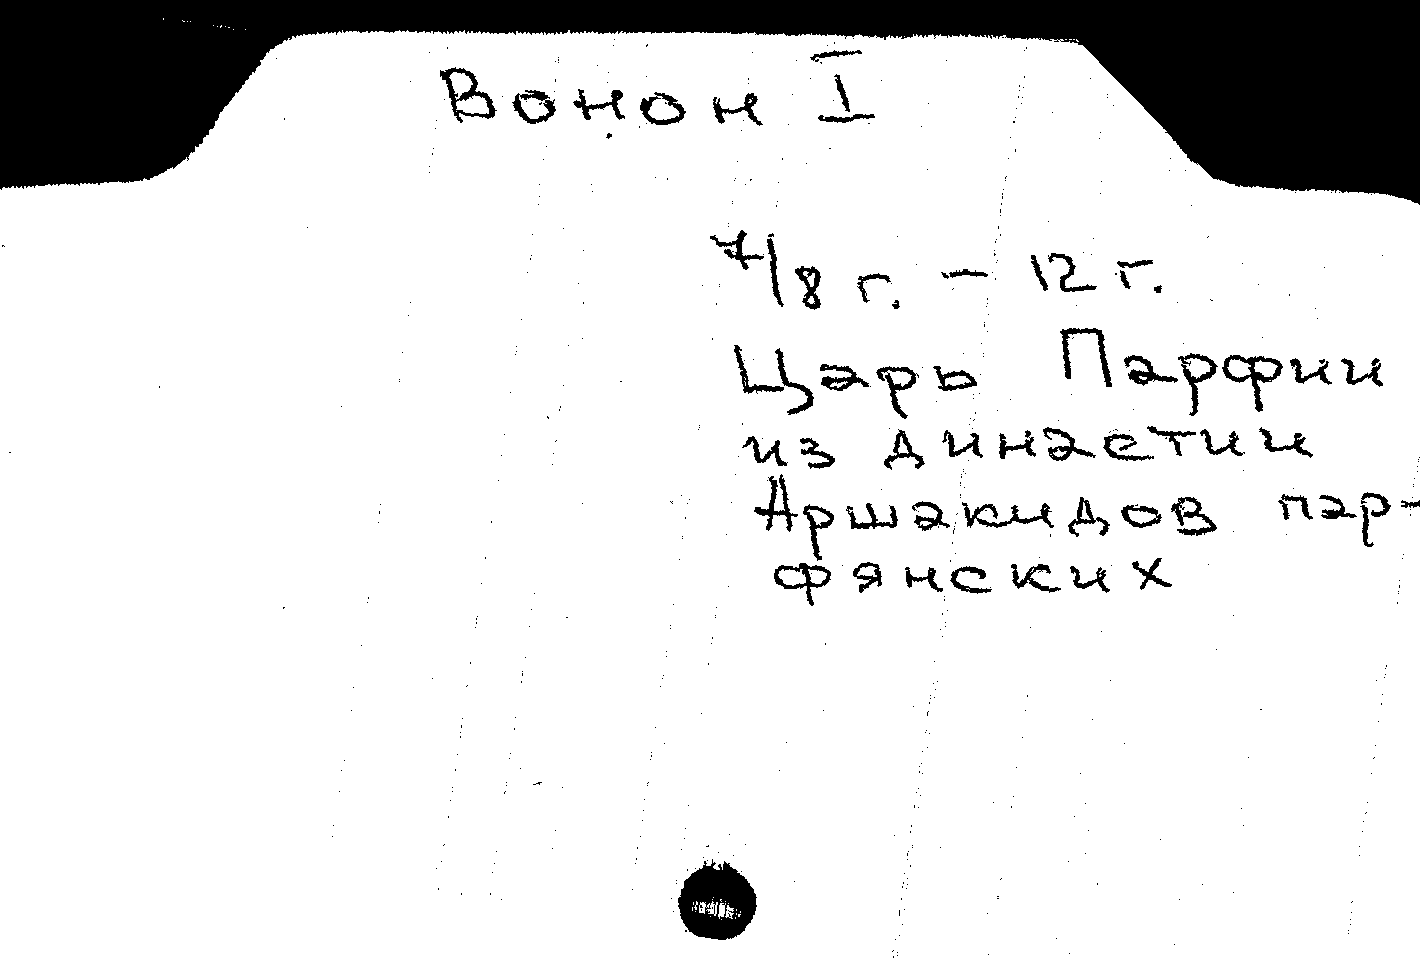 Вонон I
7/8 г. – 12 г.
Царь Парфии
из династии
Аршакидов пар-
фянских